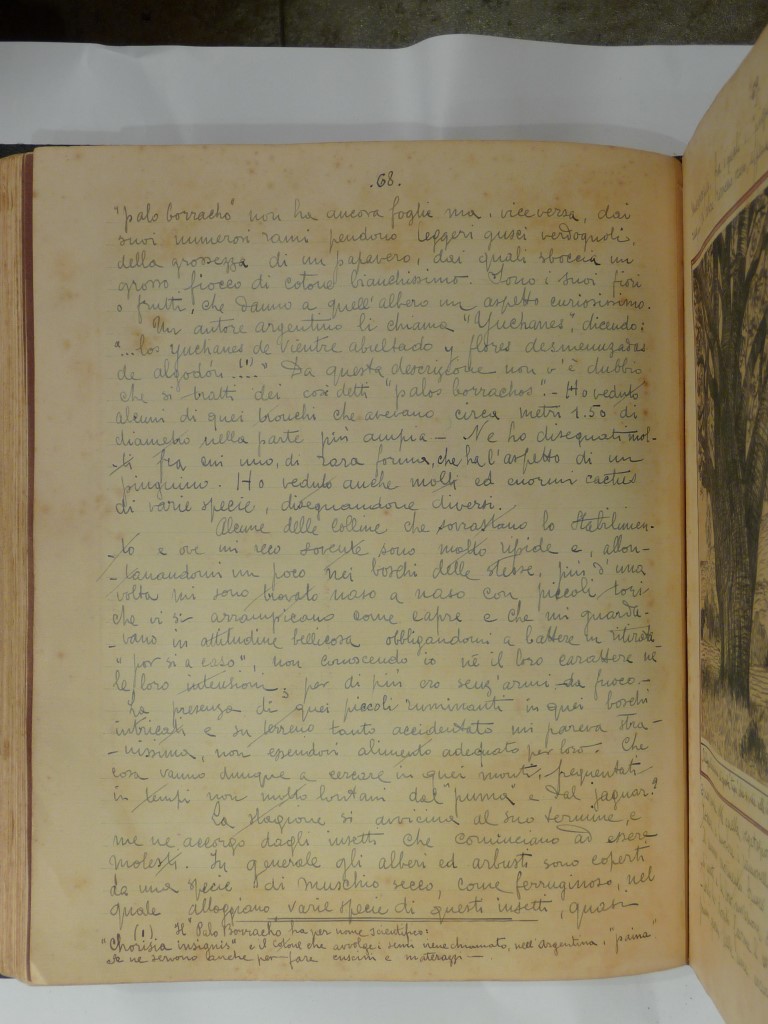 .68.
"palo borracho" non ha ancora foglie ma, viceversa, dai
suoi numerosi rami pendono leggeri gusci verdognoli,
della grossezza di un papavero, dai quali sboccia un
grosso fiocco di cotone bianchissimo. Sono i suoi fiori
o frutti, che danno a quell'albero un aspetto curiosissimo.
Un autore argentino li chiama "Yuchanes", dicendo:
"...los yuchanes de vientre abultado y flores desmenuzadas
de algodón....(1)" Da questa descrizione non v'è dubbio
che si tratti dei così detti "palos borrachos". - Ho veduto
alcuni di quei tronchi che avevano circa metri 1.50 di
diametro nella parte più ampia - Ne ho disegnati mol-
-ti fra cui uno, di rara forma, che ha l'aspetto di un
pinguino. Ho veduto anche molti ed enormi cactus
di varie specie, disegnandone diversi.
Alcune delle colline che sovrastano lo Stabilimen-
-to e ove mi reco sovente sono molto ripide e, allon-
-tanandomi un poco nei boschi delle stesse, più d'una
volta mi sono trovato naso a naso con piccoli tori
che vi si arrampicano come capre e che mi guarda-
-vano in attitudine bellicosa obbligandomi a battere in ritirata
"por si a caso", non conoscendo io nè il loro carattere nè
le loro intenzioni, per di più ero senz'armi da fuoco. -
La presenza di quei piccoli ruminanti in quei boschi
intricati e su terreno tanto accidentato mi pareva stra-
-nissima, non essendovi alimento adeguato per loro. Che
cosa vanno dunque a cercare in quei monti, frequentati
in tempi non molto lontani dal "puma" e dal "jaguar"?
La stagione si avvicina al suo termine, e
me ne accorgo dagli insetti che cominciano ad essere
molesti. In generale gli alberi ed arbusti sono coperti
da una specie di muschio secco, come ferruginoso, nel
quale alloggiano varie specie di questi insetti, quasi
(1). Il "Palo Borracho" ha per nome scientifico:
"Chorisia insignis" e il cotone che avvolge i semi viene chiamato, nell'Argentina, "paina"
Se ne servono anche per fare cuscini e materassi -